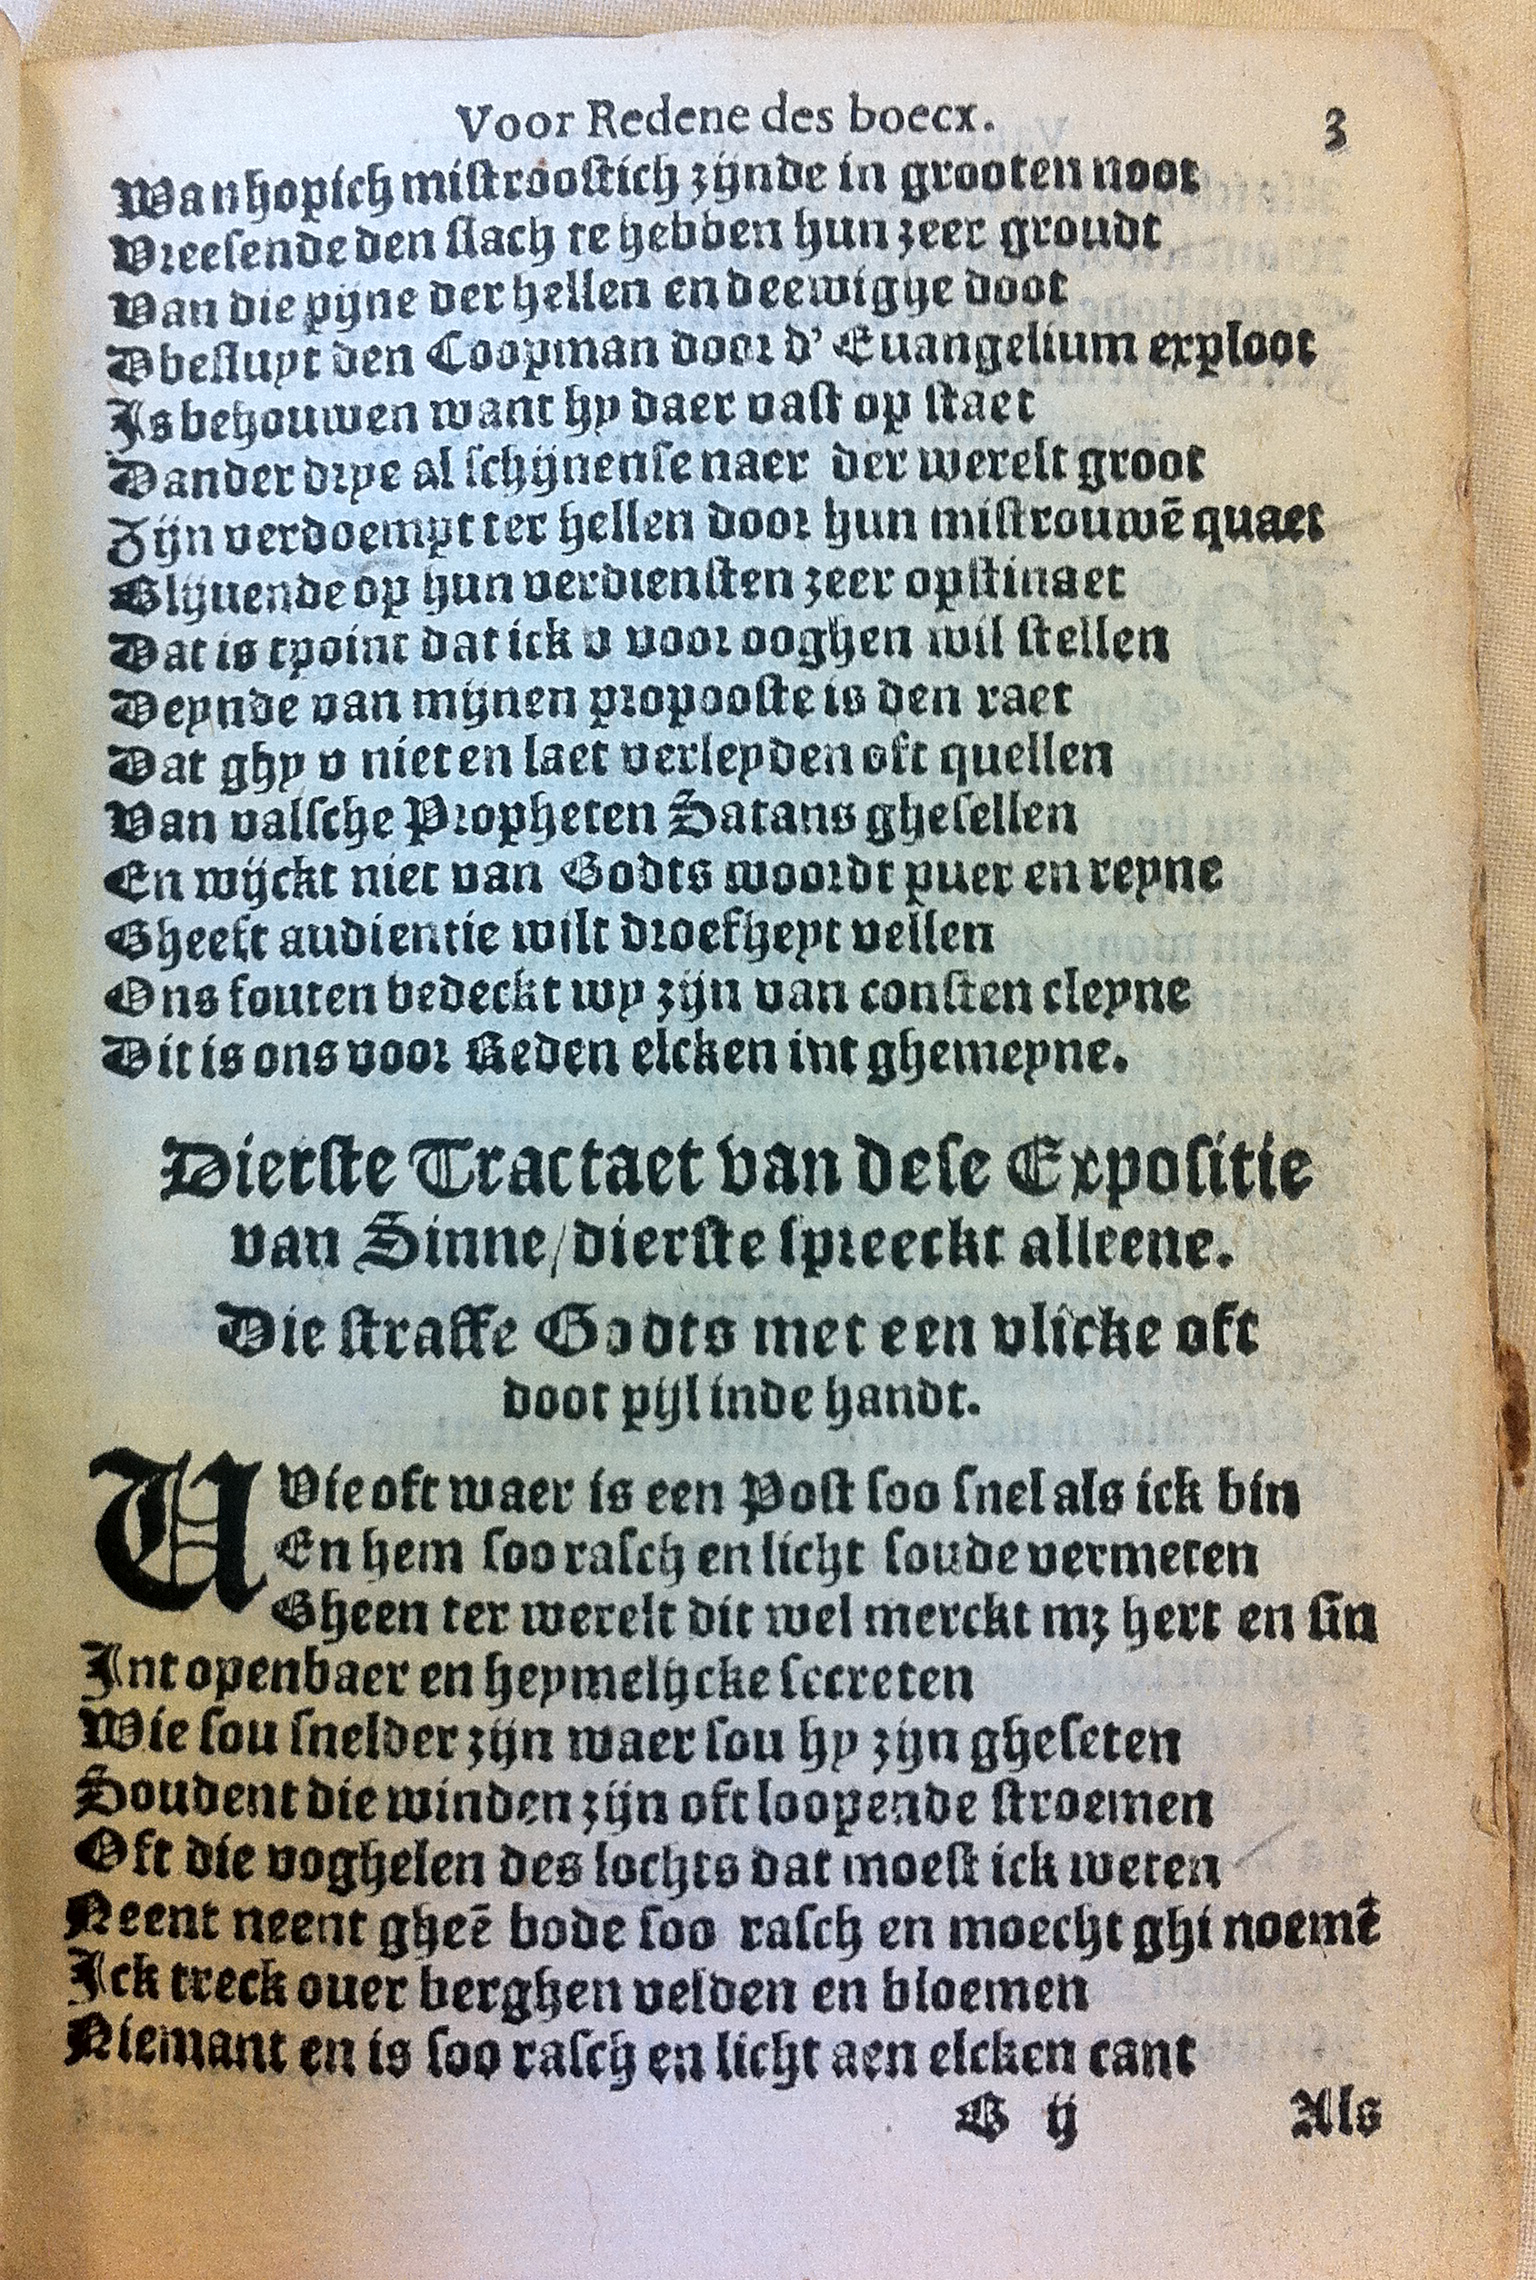 Voor Redene des boecx. 3
Wanhopich mistroostich zijnde in grooten noot
Vreesende den slach te hebben hun zeer groudt
Van die pijne der hellen en deewighe doot
Dbesluyt den Coopman door d' Euangelium exploot
Is behouwen want hy daer vast op staet
Dander drye al schijnense naer der werelt groot
Zijn verdoempt ter hellen door hun mistrouwē quaet
Blijuende op hun verdiensten zeer opstinaet
Dat is tpoint dat ick v voor ooghen wil stellen
Deynde van mijnen propooste is den raet
Dat ghy v niet en laet verleyden oft quellen
Van valsche Propheten Satans ghesellen
En wijckt niet van Godts woordt puer en reyne
Gheeft audientie wilt droefheyt vellen
Ons fouten bedeckt wy zijn van consten cleyne
Dit is ons voor Reden elcken int ghemeyne.
Dierste Tractaet van dese Expositie
van Sinne/dierste spreeckt alleene.
Die straffe Godts met een vlicke oft
doot pijl inde handt.
VVie oft waer is een Post soo snel als ick bin
En hem soo rasch en licht soude vermeten
Gheen ter werelt dit wel merckt mz hert en sin
Int openbaer en heymelijcke secreten
Wie sou snelder zijn waer sou hy zijn gheseten
Soudent die winden zijn oft loopende stroemen
Oft die voghelen des lochts dat moest ick weten
Neent neent gheē bode soo rasch en moecht ghi noemē
Ick treck ouer berghen velden en bloemen
Niemant en is soo rasch en licht aen elcken cant
B ij Als